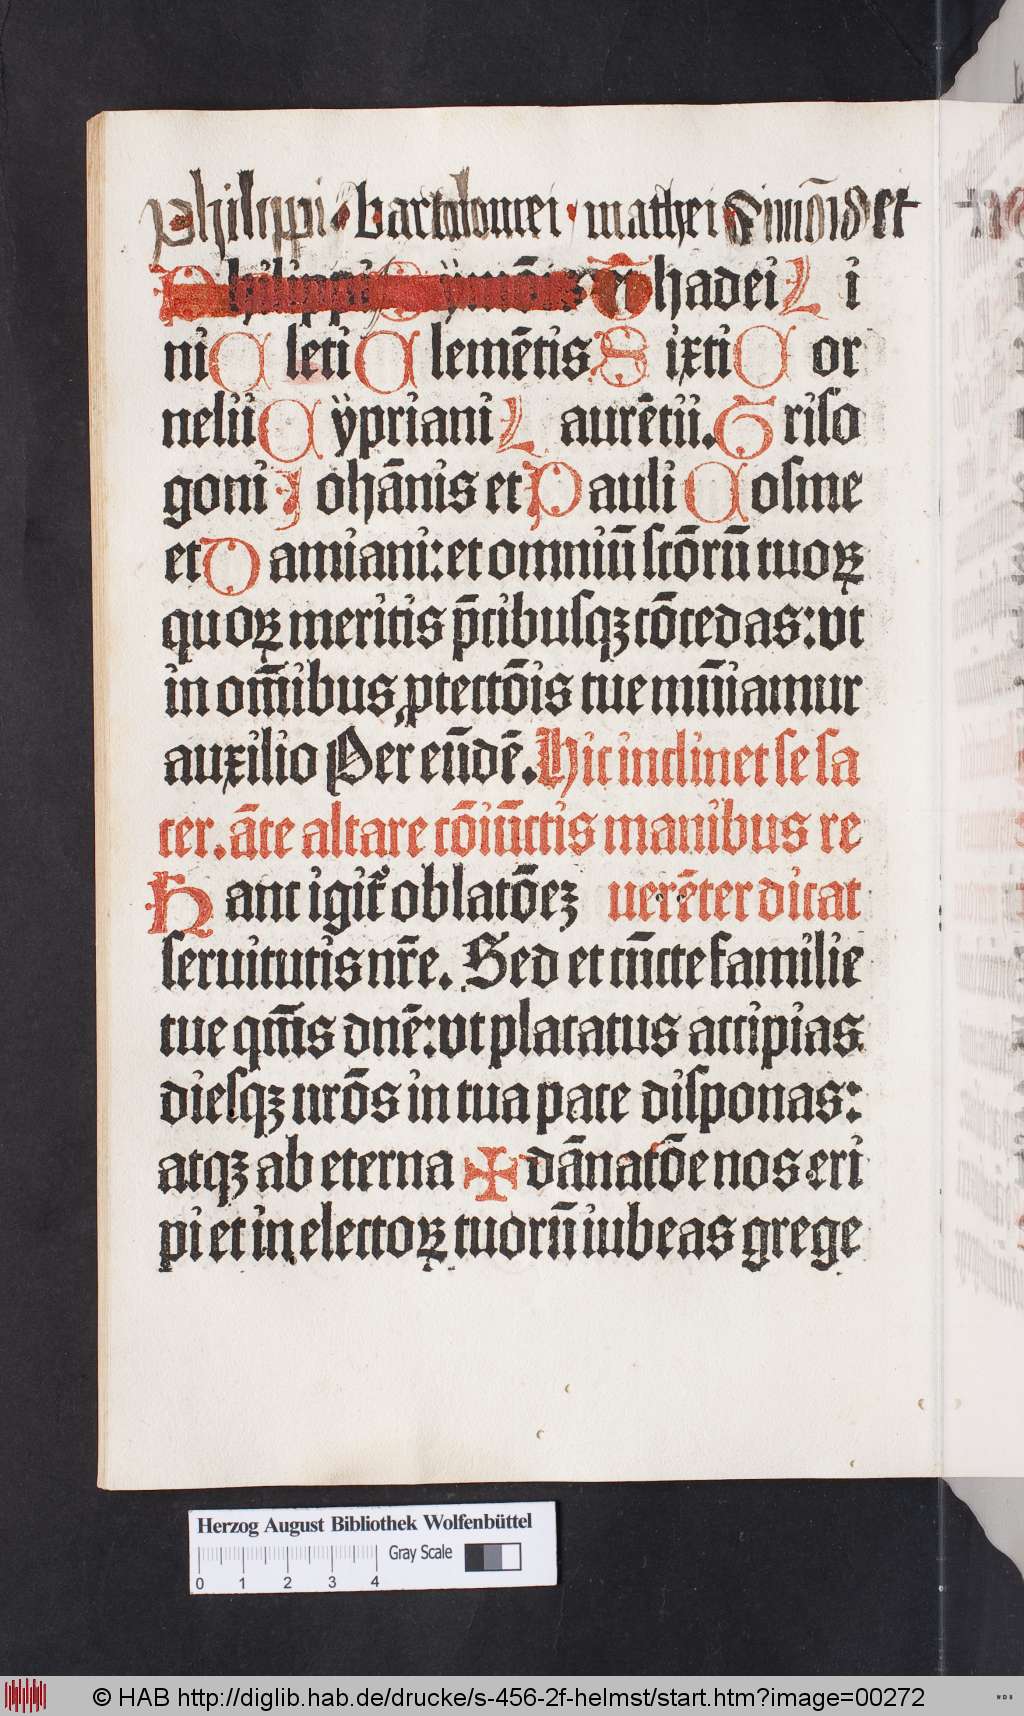 Philippi · bartolomei · mathei Simōis et
Philippi Sÿmōis et Thadei Li
ni Cleti Clemētis Sixti Cor
nelii Cÿpriani Laurētii. Griſo
goni Johānis et Pauli Coſme
et Damiani: et omniū ſctōrū tuoꝝ
quoꝝ meritis p̄cibuſqꝫ cōcedas: vt
in om̄ibus ꝓtectōis tue mūiamur
auxilio Per eūdē. Hic inclinet ſe ſa
cer. āte altare cōiūctis manibus re
Hanc igit᷑ oblatōeꝫ uerēter dicat
ſeruitutis nr̄e. Sed et cūcte familie
tue qm̄s dn̄e: vt placatus accipias
dieſqꝫ nrōs in tua pace diſponas:
atqꝫ ab eterna ✠ dānatōe nos eri
pi et in electoꝝ tuorū iubeas grege
Herzog August Bibliothek Wolfenbüttel
Gray Scale
0 1 2 3 4
© HAB http://diglib.hab.de/drucke/s-456-2f-helmst/start.htm?image=00272